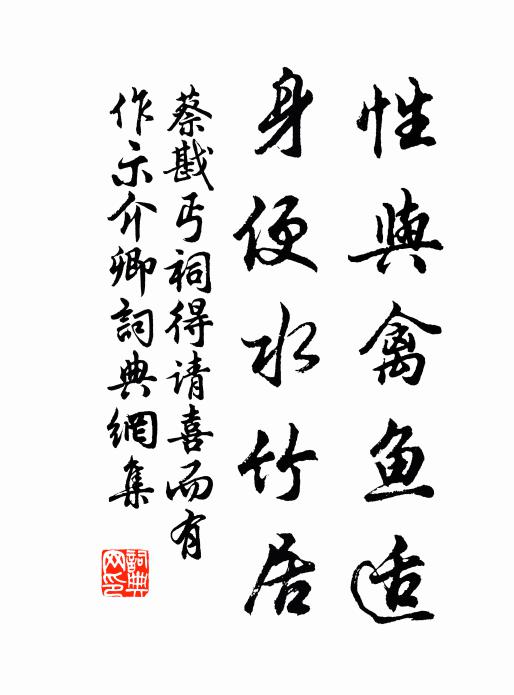 性與禽鱼适
身便水竹居
蔡戡丐祠得请喜而有
作示介卿詞典網集
詞典網印